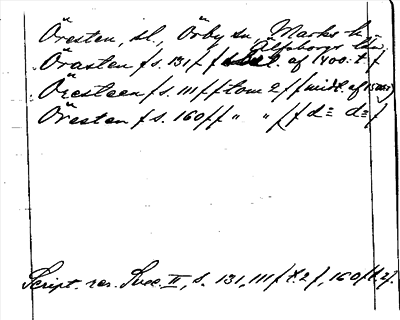 Öresten, sl., Örby sn, Marks h
Älfsborgs län,
Örasten (s. 131) ( af 1400.t.)
Öresteen (s. 111) (tom 2) (midt. af 1500)
Öresten (s. 160) ( " " ) ( d= d= )
Script. rer. Svec. II, s. 131, 111 (t. 2), 160 (t. 2).